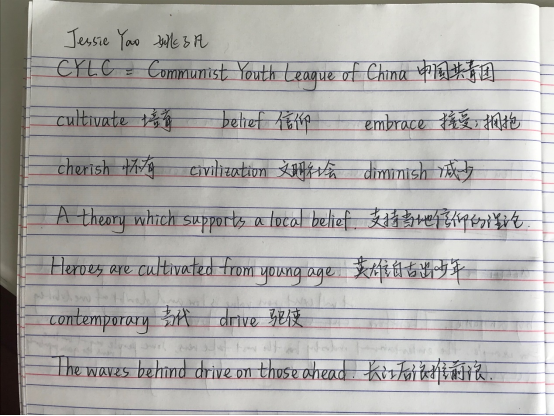 Jessie Yao 姚了凡
CYLC = Communist Youth League of China 中国共青团
cultivate 培育 belief 信仰 embrace 接受,拥抱
cherish 怀有 civilization 文明社会 diminish 减少
A theory which supports a local belief. 支持当地信仰的理论.
Heroes are cultivated from young age. 英雄自古出少年
contemporary 当代 drive 驱使
The waves behind drive on those ahead. 长江后浪推前浪.